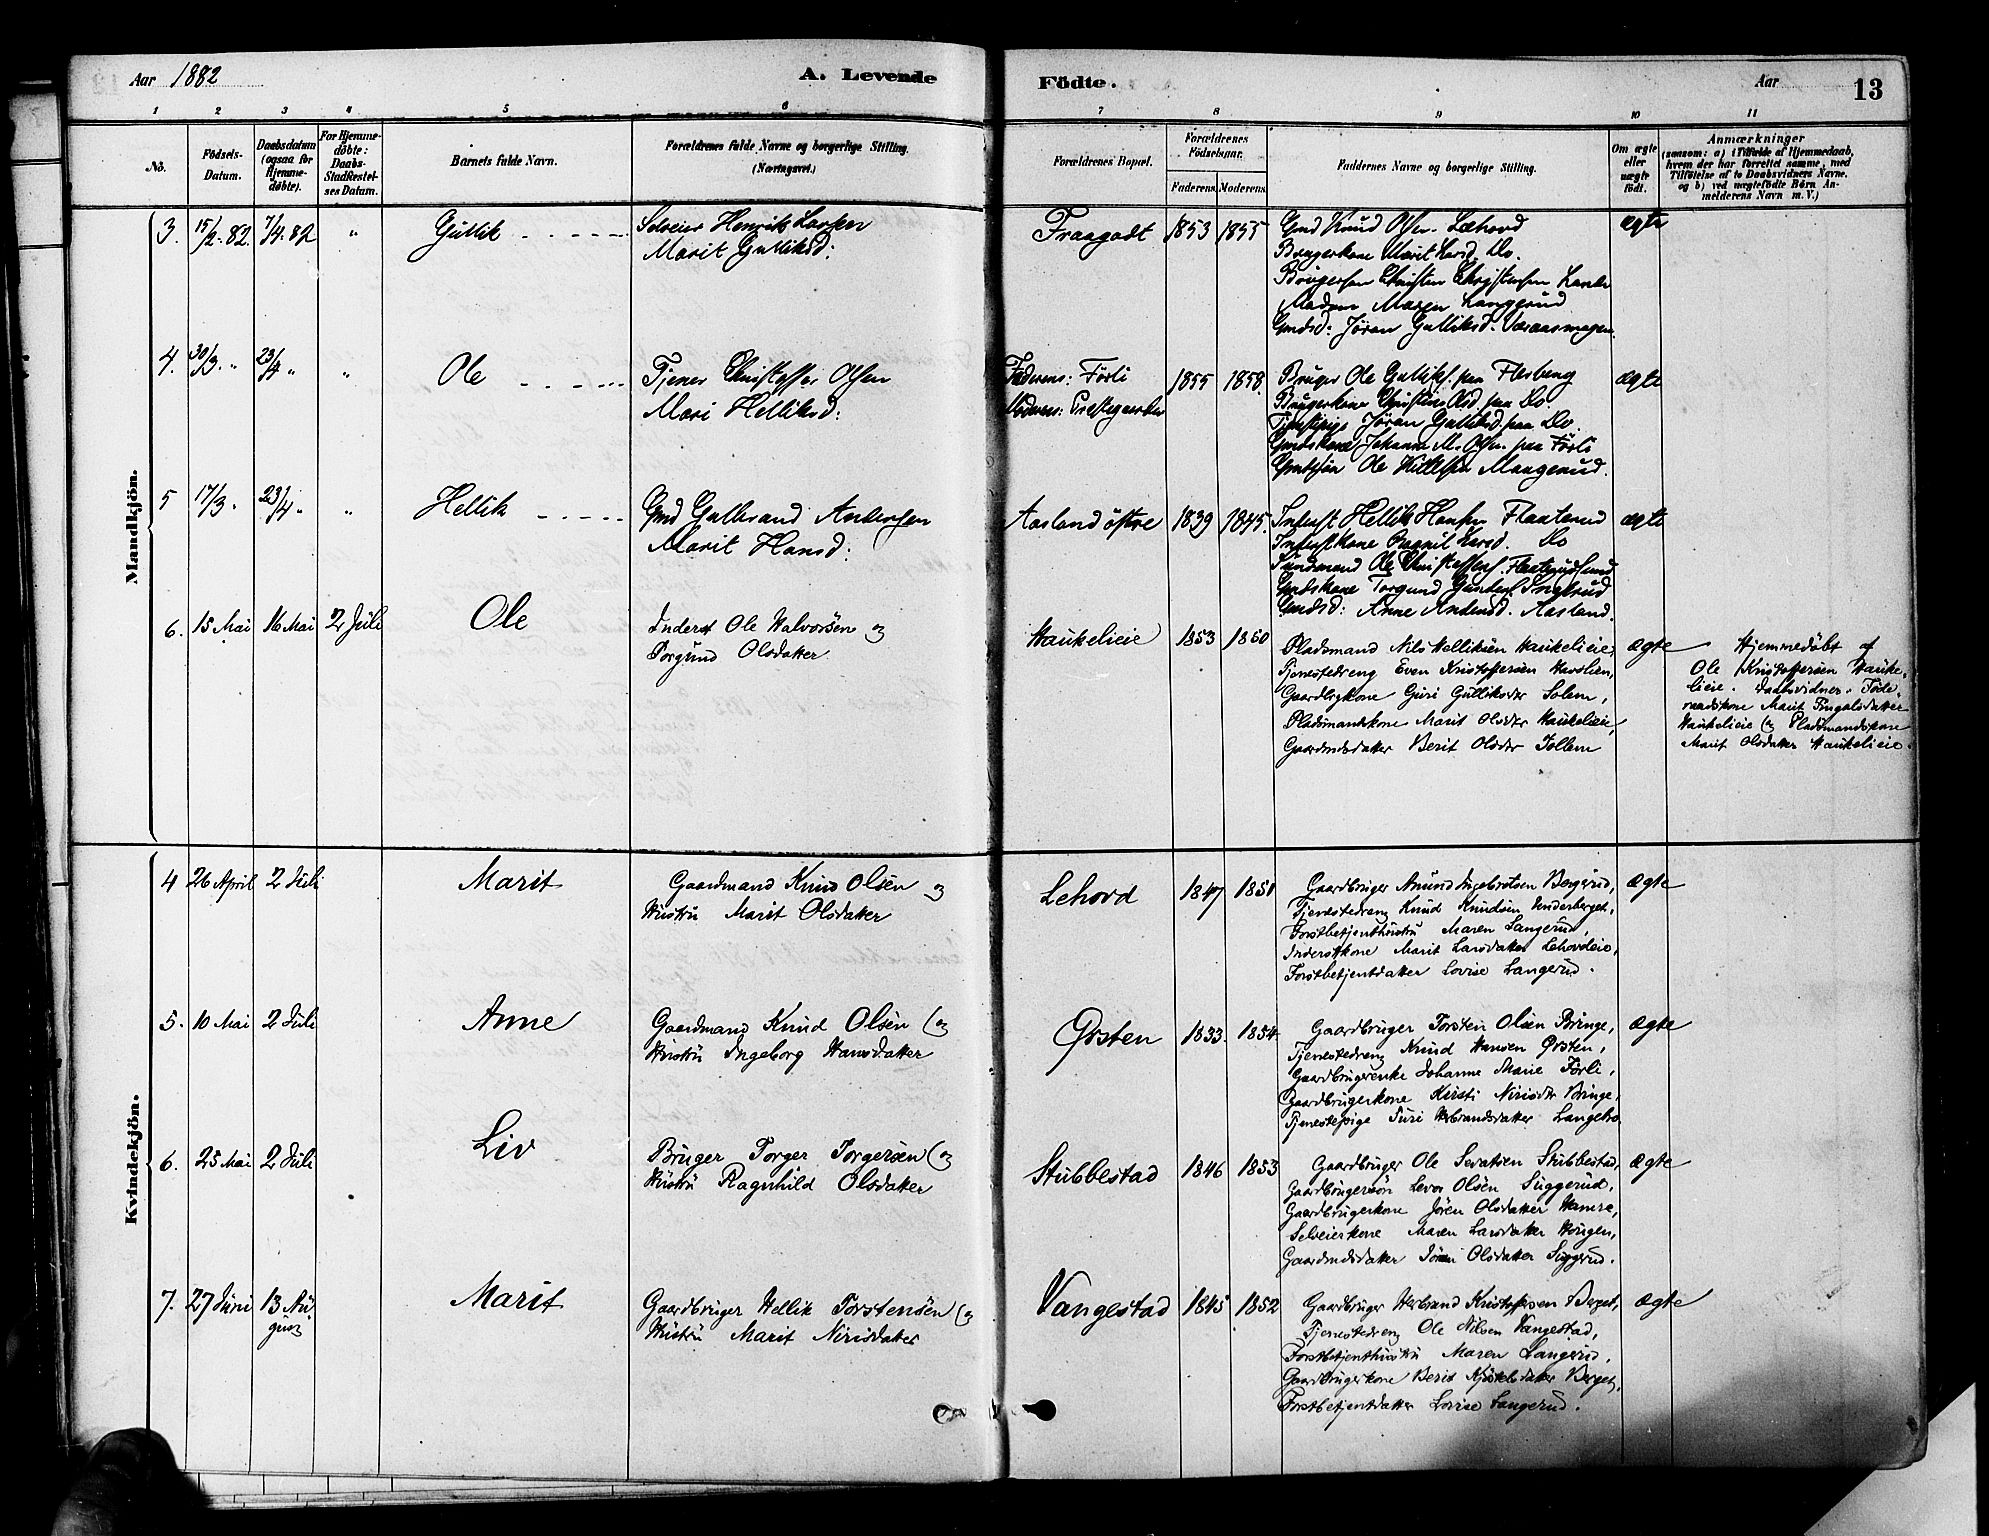 Aar 1882
A. Levende
Födte.
Aar
13
1 2 3 4 5 6 7 8 9 10 11
No.
Födsels-Datum.
Daabsdatum (ogsaa for Hjemmedöbte).
For Hjemmedöbte: Daabs-Stadfæstelses Datum.
Barnets fulde Navn.
Forældrenes fulde Navne og borgerlige Stilling. (Næringsvei.)
Forældrenes Bopæl.
Forældrenes Födselsaar.
Faderens. Moderens.
Faddernes Navne og borgerlige Stilling.
Om ægte eller uægte födt.
Anmærkninger
(saasom: a) i Tilfælde af Hjemmedaab,
hvem der har forrettet samme, med
Tilföielse af to Daabsvidners Navne.
og b) ved uægtefödte Börn An-
melderens Navn m. V.)
Mandkjön.
3. 15/2. 82. 7/4. 82 " Gullik
Selveier Henrik Larsen
Marit Gulliksd:
Fraagodt 1853 1855
Gmd Knud Olsen Læhovd
Brugerkone Marit Larsd. Do.
Brugersøn Christen Christensen
Madam Maren Langerud
Gmdsd: Jøran Gulliksd.
ægte
4. 30/3. " 23/4 " " Ole
Tjener Christoffer Olsen
Mari Helliksd:
Faderens: Førli
Moderens: Præstegaarden
1855 1858.
Bruger Ole Gulliks. paa Flesberg
Brugerkone Christine Olsd. paa Do.
Tjenestepige Jøran Gulliksd. paa Do.
Gmdskone Johanne M. Olsen paa Førli
Gmdssøn Ole Maagerud.
ægte
5 17/3 " 23/4 " " Hellik
Gmd Gulbrand Andersen
Marit Hansd:
Aasland østre 1839 1845.
Inderst Hellik Hansen Flaaterud
Inderstkone Ragnil Larsd. Do
Sundmand Ole Christoffers. Flaaterudsund
Gmdskone Torgund Gundersd.
Gmdsd: Anne Andersd. Aasland.
ægte
6. 15 Mai 16 Mai 2 Juli Ole
Inderst Ole Halvorsen og
Torgund Olsdatter
Haukelieie 1853 1860
Pladsmand Nils Helliksen Haukelieie,
Tjenestedreng Even Kristoffersen Haavlien,
Gaardbrgkone Guri Gulliksdtr Solem,
Pladsmandskone Marit Olsdtr Haukelieie,
Gaardmdsdatter Berit Olsdtr Jollem
ægte
Hjemmedøbt af
Ole Kristoffersen Hauke-
lieie. Daabsvidner: Føde-
raadskone Marit
Haukelieie og Pladsmandskone
Marit Olsdatter Haukelieie.
Kvindekjön.
4 26 April 2 Juli Marit
Gaardmand Knud Olsen og
Hustru Marit Olsdatter
Lehovd 1847 1851
Gaardbruger Amund Ingebretsen Bergerud,
Tjenestedreng Knud Knudsen Underberget,
Forstbetjenthustru Maren Langerud,
Inderstkone Marit Larsdatter Lehovdeie,
Forstbetjentdatter Lovise Langerud.
ægte
5. 10 Mai 2 Juli Anne
Gaardmand Knud Olsen og
Hustru Ingeborg Hansdatter
Ørsten 1833. 1854.
Gaardbruger Torsten Olsen Bringe,
Tjenestedreng Knud Hansen Ørsten,
Gaardbrugerenke Johanne Marie Førli,
Gaardbrugerkone Kirsti Nirisdtr Bringe,
Tjenestepige Turi Herbrandsdatter
ægte
6. 25 Mai 2 Juli Liv
Bruger Torger Torgersen og
Hustru Ragnhild Olsdatter
Stubbestad 1846 1853
Gaardbruger Ole Sevatsen Stubbestad,
Gaardbrugersøn Levor Olsen Suggerud,
Gaardbrugerkone Jøren Olsdatter Hamre,
Selveierkone Maren Larsdatter Haugen,
Gaardmdsdatter Jøran Olsdatter Suggerud.
ægte
7. 27 Juni 13 Au-
gust
Marit
Gaardbruger Hellik Torstensen og
Hustru Marit Nirisdatter
Vangestad 1845 1852
Gaardbruger Herbrand Kristoffersen Berget,
Tjenestedreng Ole Nilsen Vangestad,
Forstbetjenthustru Maren Langerud,
Gaardbrugerkone Berit Kjøstelsdatter Berget,
Forstbetjentdatter Lovise Langerud.
ægte